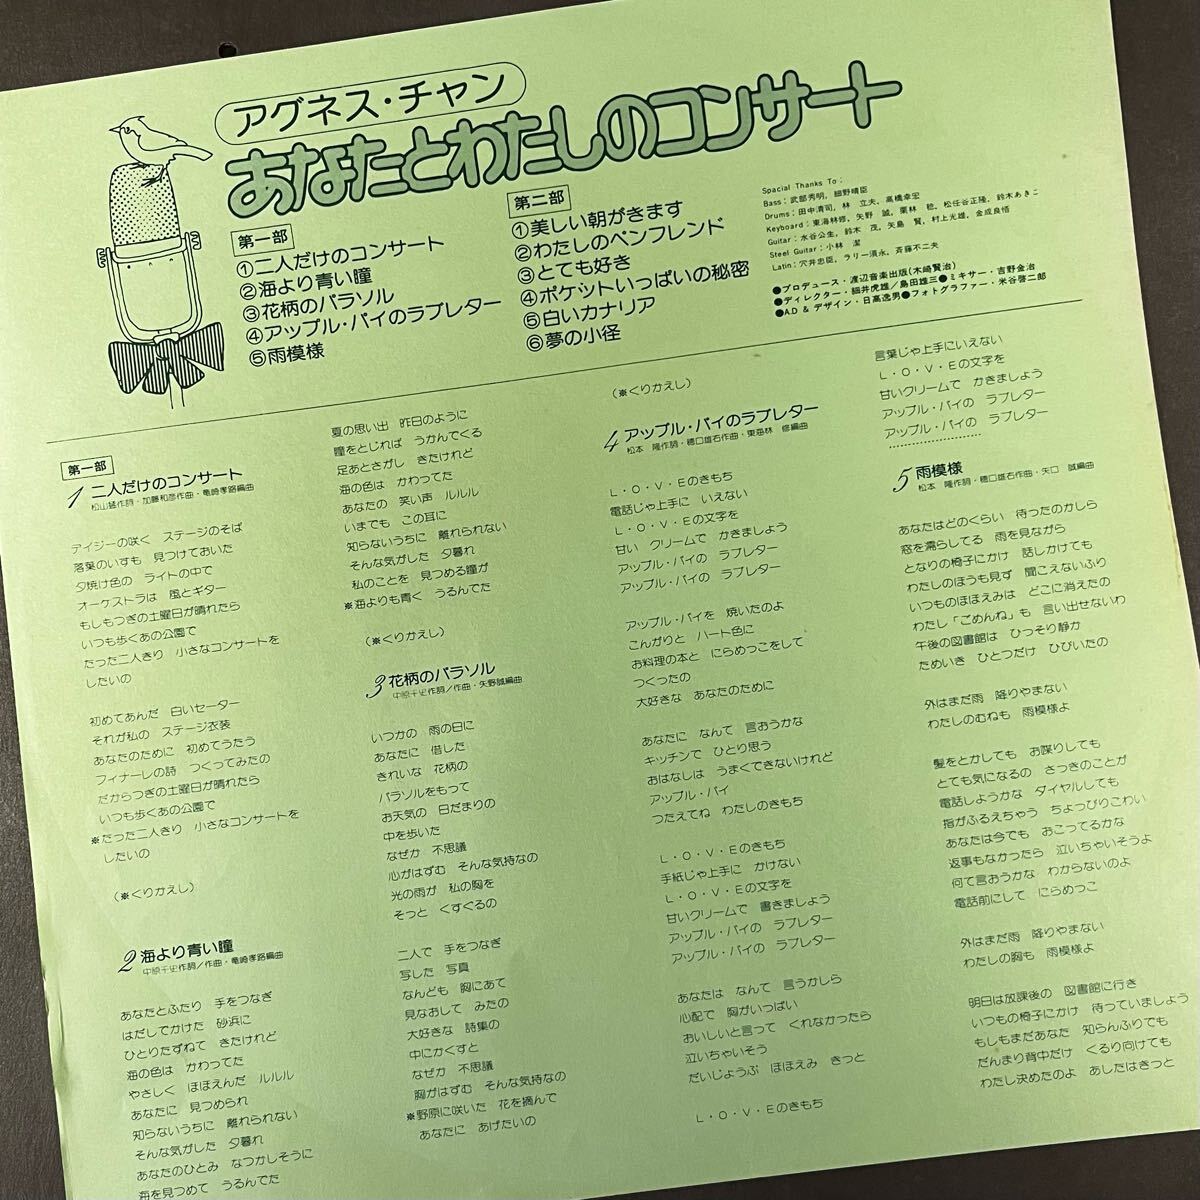 アグネス・チャン
あなたとわたしのコンサート
第一部
①二人だけのコンサート
②海より青い瞳
③花柄のパラソル
④アップル・パイのラブレター
⑤雨模様
第二部
①美しい朝がきます
②わたしのペンフレンド
③とても好き
④ポケットいっぱいの秘密
⑤白いカナリア
⑥夢の小径
Spacial Thanks To;
Bass:武部秀明, 細野晴臣
Drums:田中清司, 林 立夫, 高橋幸宏
Keyboard:東海林修, 矢野 誠, 栗林 稔, 松任谷正隆, 鈴木あきこ
Guitar:水谷公生, 鈴木 茂, 矢島 賢, 村上光雄, 金成良悟
Steel Guitar:小林 潔
Latin:穴井忠臣, ラリー須永, 斉藤不二夫
●プロデュース・渡辺音楽出版(木崎賢治)
●ディレクター・細井虎雄/島田雄三●ミキサー・吉野金治
●A.D & デザイン・日高逸男●フォトグラファー・米谷啓二郎
第一部
1 二人だけのコンサート
松山猛作詞・加藤和彦作曲・竜崎孝路編曲
デイジーの咲く ステージのそば
落葉のいすも 見つけておいた
夕焼け色の ライトの中で
オーケストラは 風とギター
もしもつぎの土曜日が晴れたら
いつも歩くあの公園で
たった二人きり 小さなコンサートを
したいの
初めてあんだ 白いセーター
それが私の ステージ衣装
あなたのために 初めてうたう
フィナーレの詩 つくってみたの
だからつぎの土曜日が晴れたら
いつも歩くあの公園で
※たった二人きり 小さなコンサートを
したいの
(※くりかえし)
2 海より青い瞳
中原千史作詞/作曲・竜崎孝路編曲
あなたとふたり 手をつなぎ
はだしでかけた 砂浜に
ひとりたずねて きたけれど
海の色は かわってた
やさしく ほほえんだ ルルル
あなたに 見つめられ
知らないうちに 離れられない
そんな気がした 夕暮れ
あなたのひとみ なつかしそうに
海を見つめて うるんでた
夏の思い出 昨日のように
瞳をとじれば うかんでくる
足あとさがし きたけれど
海の色は かわってた
あなたの 笑い声 ルルル
いまでも この耳に
知らないうちに 離れられない
そんな気がした 夕暮れ
私のことを 見つめる瞳が
※海よりも青く うるんでた
(※くりかえし)
3 花柄のパラソル
中原千史作詞/作曲・矢野誠編曲
いつかの 雨の日に
あなたに 借した
きれいな 花柄の
パラソルをもって
お天気の 日だまりの
中を歩いた
なぜか 不思議
心がはずむ そんな気持なの
光の雨が 私の胸を
そっと くすぐるの
二人で 手をつなぎ
写した 写真
なんども 胸にあて
見なおして みたの
大好きな 詩集の
中にかくすと
なぜか 不思議
胸がはずむ そんな気持なの
※野原に咲いた 花を摘んで
あなたに あげたいの
(※くりかえし)
4 アップル・パイのラブレター
松本 隆作詞・穂口雄右作曲・東海林 修編曲
L・O・V・Eのきもち
電話じゃ上手に いえない
L・O・V・Eの文字を
甘い クリームで かきましょう
アップル・パイの ラブレター
アップル・パイの ラブレター
アップル・パイを 焼いたのよ
こんがりと ハート色に
お料理の本と にらめっこをして
つくったの
大好きな あなたのために
あなたに なんて 言おうかな
キッチンで ひとり思う
おはなしは うまくできないけれど
アップル・パイ
つたえてね わたしのきもち
L・O・V・Eのきもち
手紙じゃ上手に かけない
L・O・V・Eの文字を
甘いクリームで 書きましょう
アップル・パイの ラブレター
アップル・パイの ラブレター
あなたは なんて 言うかしら
心配で 胸がいっぱい
おいしいと言って くれなかったら
泣いちゃいそう
だいじょうぶ ほほえみ きっと
L・O・V・Eのきもち
言葉じゃ上手にいえない
L・O・V・Eの文字を
甘いクリームで かきましょう
アップル・パイの ラブレター
アップル・パイの ラブレター
5 雨模様
松本 隆作詞・穂口雄右作曲・矢口 誠編曲
あなたはどのくらい 待ったのかしら
窓を濡らしてる 雨を見ながら
となりの椅子にかけ 話しかけても
わたしのほうも見ず 聞こえないふり
いつものほほえみは どこに消えたの
わたし「ごめんね」も 言い出せないわ
午後の図書館は ひっそり静か
ためいき ひとつだけ ひびいたの
外はまだ雨 降りやまない
わたしのむねも 雨模様よ
髪をとかしても お喋りしても
とても気になるの さっきのことが
電話しようかな ダイヤルしても
指がふるえちゃう ちょっぴりこわい
あなたは今でも おこってるかな
返事もなかったら 泣いちゃいそうよ
何て言おうかな わからないのよ
電話前にして にらめっこ
外はまだ雨 降りやまない
わたしの胸も 雨模様よ
明日は放課後の 図書館に行き
いつもの椅子にかけ 待っていましょう
もしもまだあなた 知らんふりでも
だんまり背中だけ くるり向けても
わたし決めたのよ あしたはきっと